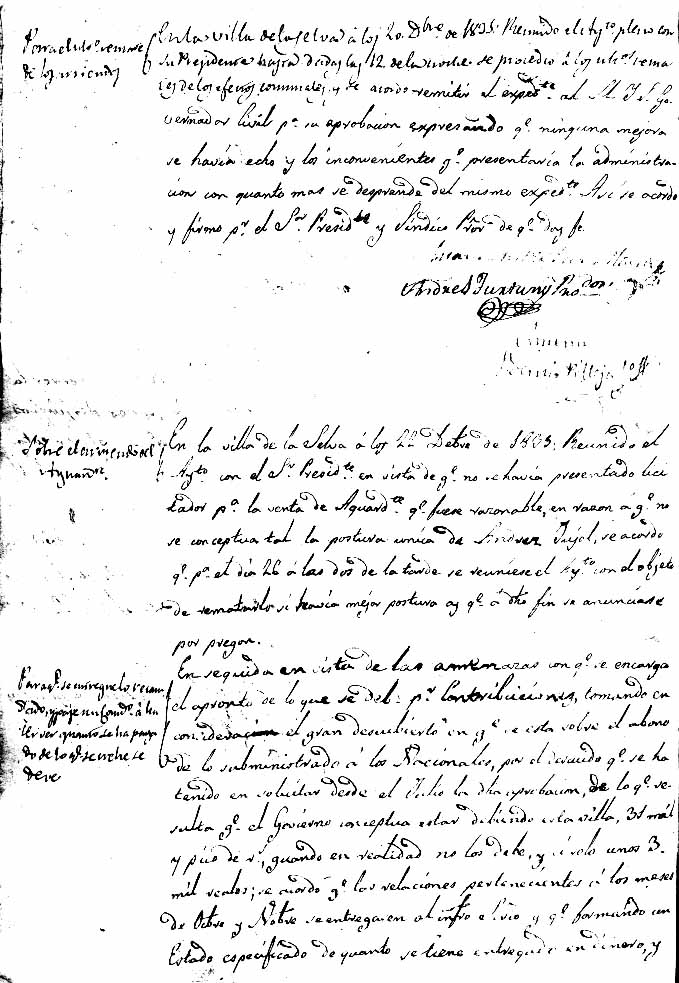 Para el ult.º remate
de los arriendos
En la villa de la Selva á los 20 Dbre de 1835: Reunido el Ay.to pleno con
su Presidente hasta dadas las 12 de la noche se procedio á los ult.s rema
tes de los efectos comunales, y se acordo remitir el exped.te al S.r Go
vernador Civil p.a su aprobacion expresando q.e ninguna mejora
se havia echo y los inconvenientes q.e presentaria la administra-
cion con quanto mas se desprende del mismo exped.te Asi se acordo
y firmo p.r el S.or Presid.te y Sindico Pror de q.e doy fe
Andres Juncuny Pro.dor
Sobre el arriendo del
Aguard.te
En la villa de la Selva á los 22 Debre de 1835: Reunido el
Ay.to con el S.r Presid.te en vista de q.e no se havia presentado lici
tador p.a la venta de Aguard.te q.e fuese razonable, en razon á q.e no
se conceptua tal la postura unica de Andres Pujol, se acordo
q.e p.a el dia 26 á las dos de la tarde se reuniese el Ay.to con el objeto
de rematarlo si havia mejor postura y q.e á dho fin se anunciase
por pregon.
Para q.e se entregue lo recau
dado, y
ver quanto se ha paga
do de lo q.e se
deve
En seguida en vista de las amenazas con q.e se encarga
el apronto de lo que se debe p.r Contribuciones, tomando en
consideracion el gran descubierto en q.e se esta sobre el abono
de lo subministrado á los Nacionales, por el descuido q.e se ha
tenido en solicitar desde el Julio la dha aprobacion, de lo q.e re-
sulta q.e el Govierno conceptua estar debiendo esta villa, 31 mil
y pico de r.s, quando en realidad no los debe, y si solo unos 3.
mil reales; se acordo q.e las relaciones pertenecientes á los meses
de Octre y Nobre se entreguen al infro esc.no y q.e formando un
Estado especificado de quanto se tiene entregado en dinero, y